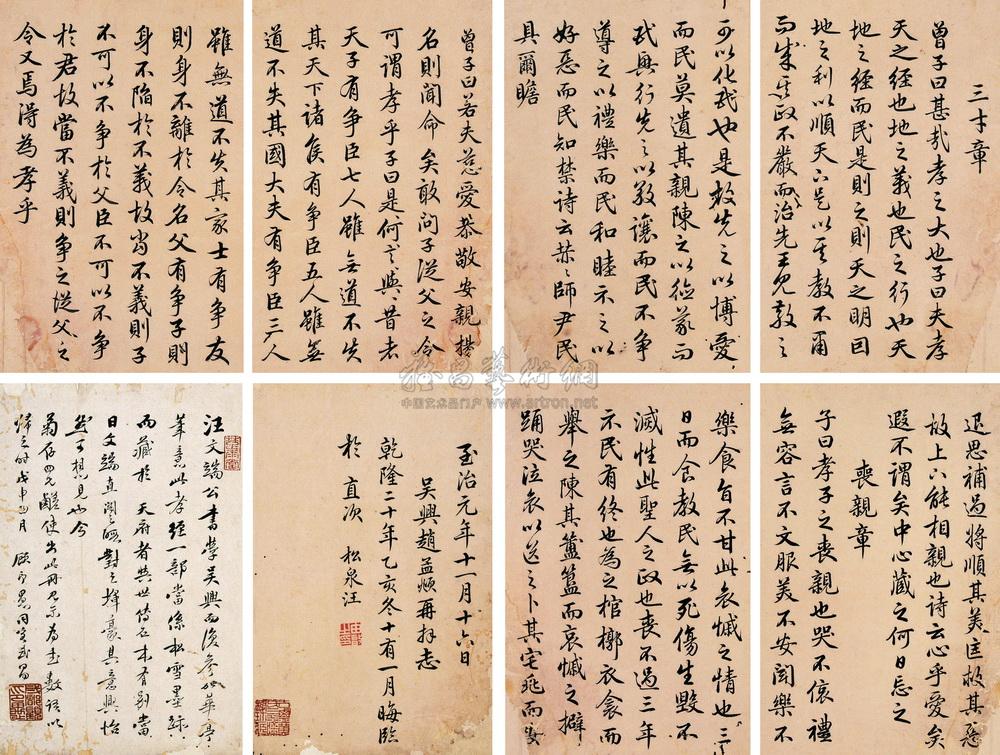 三才章
曾子曰甚哉孝之大也子曰夫孝
天之經也地之義也民之行也天
地之經而民是則之則天之明因
地之利以順天下是以其教不肅
而成其政不嚴而治先王見教之
可以化民也是故先之以博愛
而民莫遺其親陳之以德義而
民興行先之以敬讓而民不爭
導之以禮樂而民和睦示之以
好惡而民知禁詩云赫〻師尹民
具爾瞻
曾子曰若夫慈愛恭敬安親揚
名則聞命矣敢問子從父之令
可謂孝乎子曰是何言與昔者
天子有爭臣七人雖無道不失
其天下諸侯有爭臣五人雖無
道不失其國大夫有爭臣三人
雖無道不失其家士有爭友
則身不離於令名父有爭子則
身不陷於不義故當不義則子
不可以不爭於父臣不可以不爭
於君故當不義則爭之從父之
令又焉得為孝乎
退思補過將順其美匡救其惡
故上下能相親也詩云心乎愛矣
遐不謂矣中心藏之何日忘之
喪親章
子曰孝子之喪親也哭不偯禮
無容言不文服美不安聞樂不
樂食旨不甘此哀慼之情也三
日而食教民無以死傷生毀不
滅性此聖人之政也喪不過三年
示民有終也為之棺槨衣衾而
舉之陳其簠簋而哀慼之擗
踊哭泣哀以送之卜其宅兆而安
至治元年十一月十六日
吳興趙孟頫再拜志
乾隆二十年乙亥冬十有一月晦臨
於直次 松泉汪
汪文端公書學吳興而後參以華亭
筆意此孝經一部當係松雪墨跡
而藏於天府者與世傳石本有別當
日文端直廬晤對之揮毫其意興怡
然可想見也今
菊存四兄鹺使出此冊見示為書數語以
歸之時戊申四月
雅昌藝術網
中国艺术品门户 www.artron.net